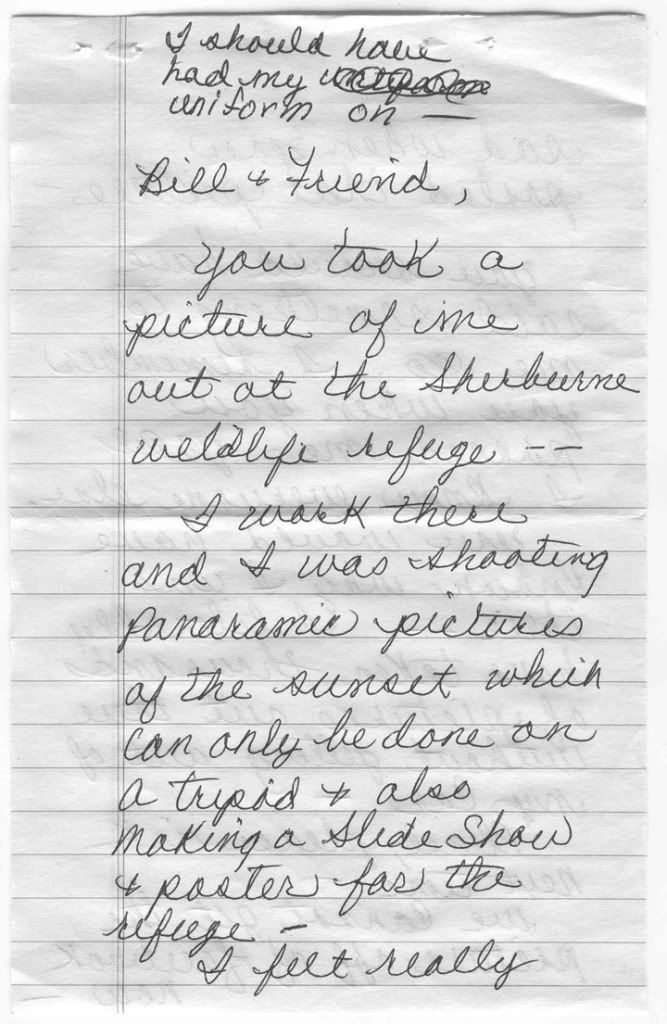 I should have
had my
uniform on —
Bill & Friend,
You took a
picture of me
out at the Sherburne
weldlife refuge --
I work there
and I was shooting
Panaramic pictures
of the sunset which
can only be done on
a tripod & also
making a Slide Show
& poster for the
refuge -
I felt really